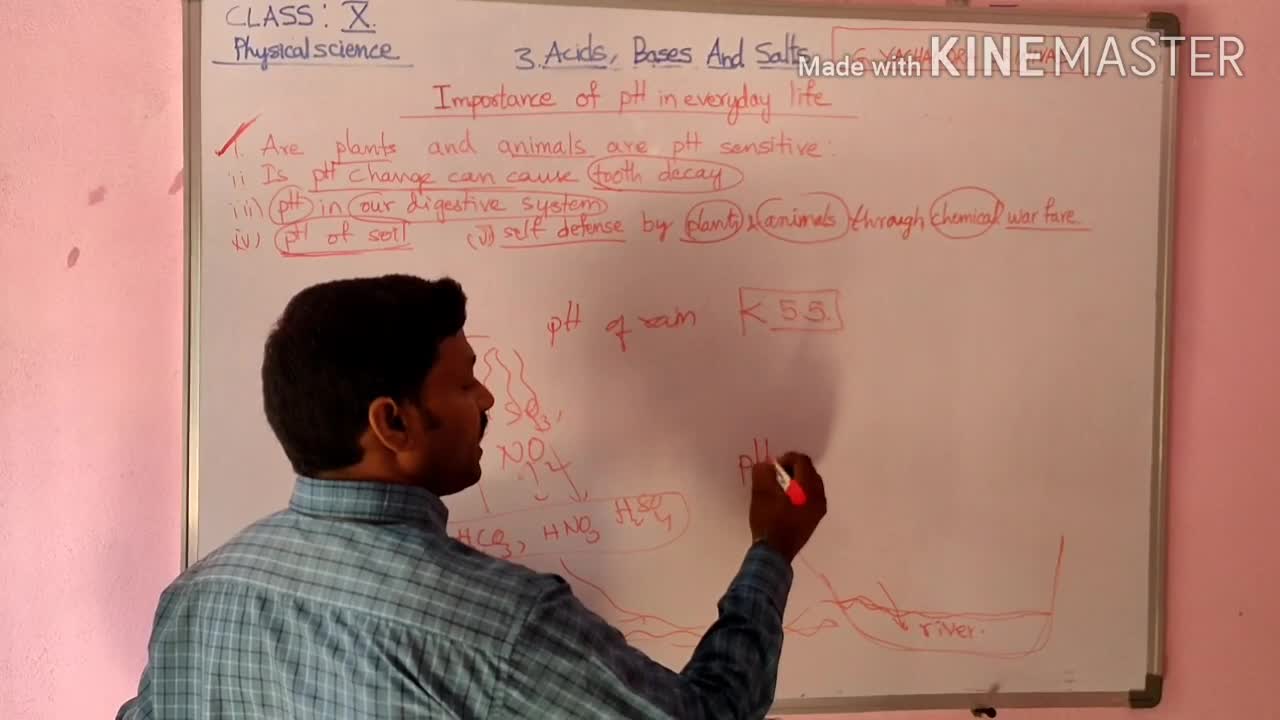 CLASS: X.
Physical science
3. Acids, Bases And Salts
Made with KINEMASTER
Importance of pH in everyday life
i. Are plants and animals are pH sensitive:
ii Is pH change can cause tooth decay
iii) pH in our digestive system
iv) pH of soil (v) self defense by plants & animals through chemical war fare
pH of rain < 5 5.
SO3,
NO2
HCO3, HNO3 H2SO4
pH
river.